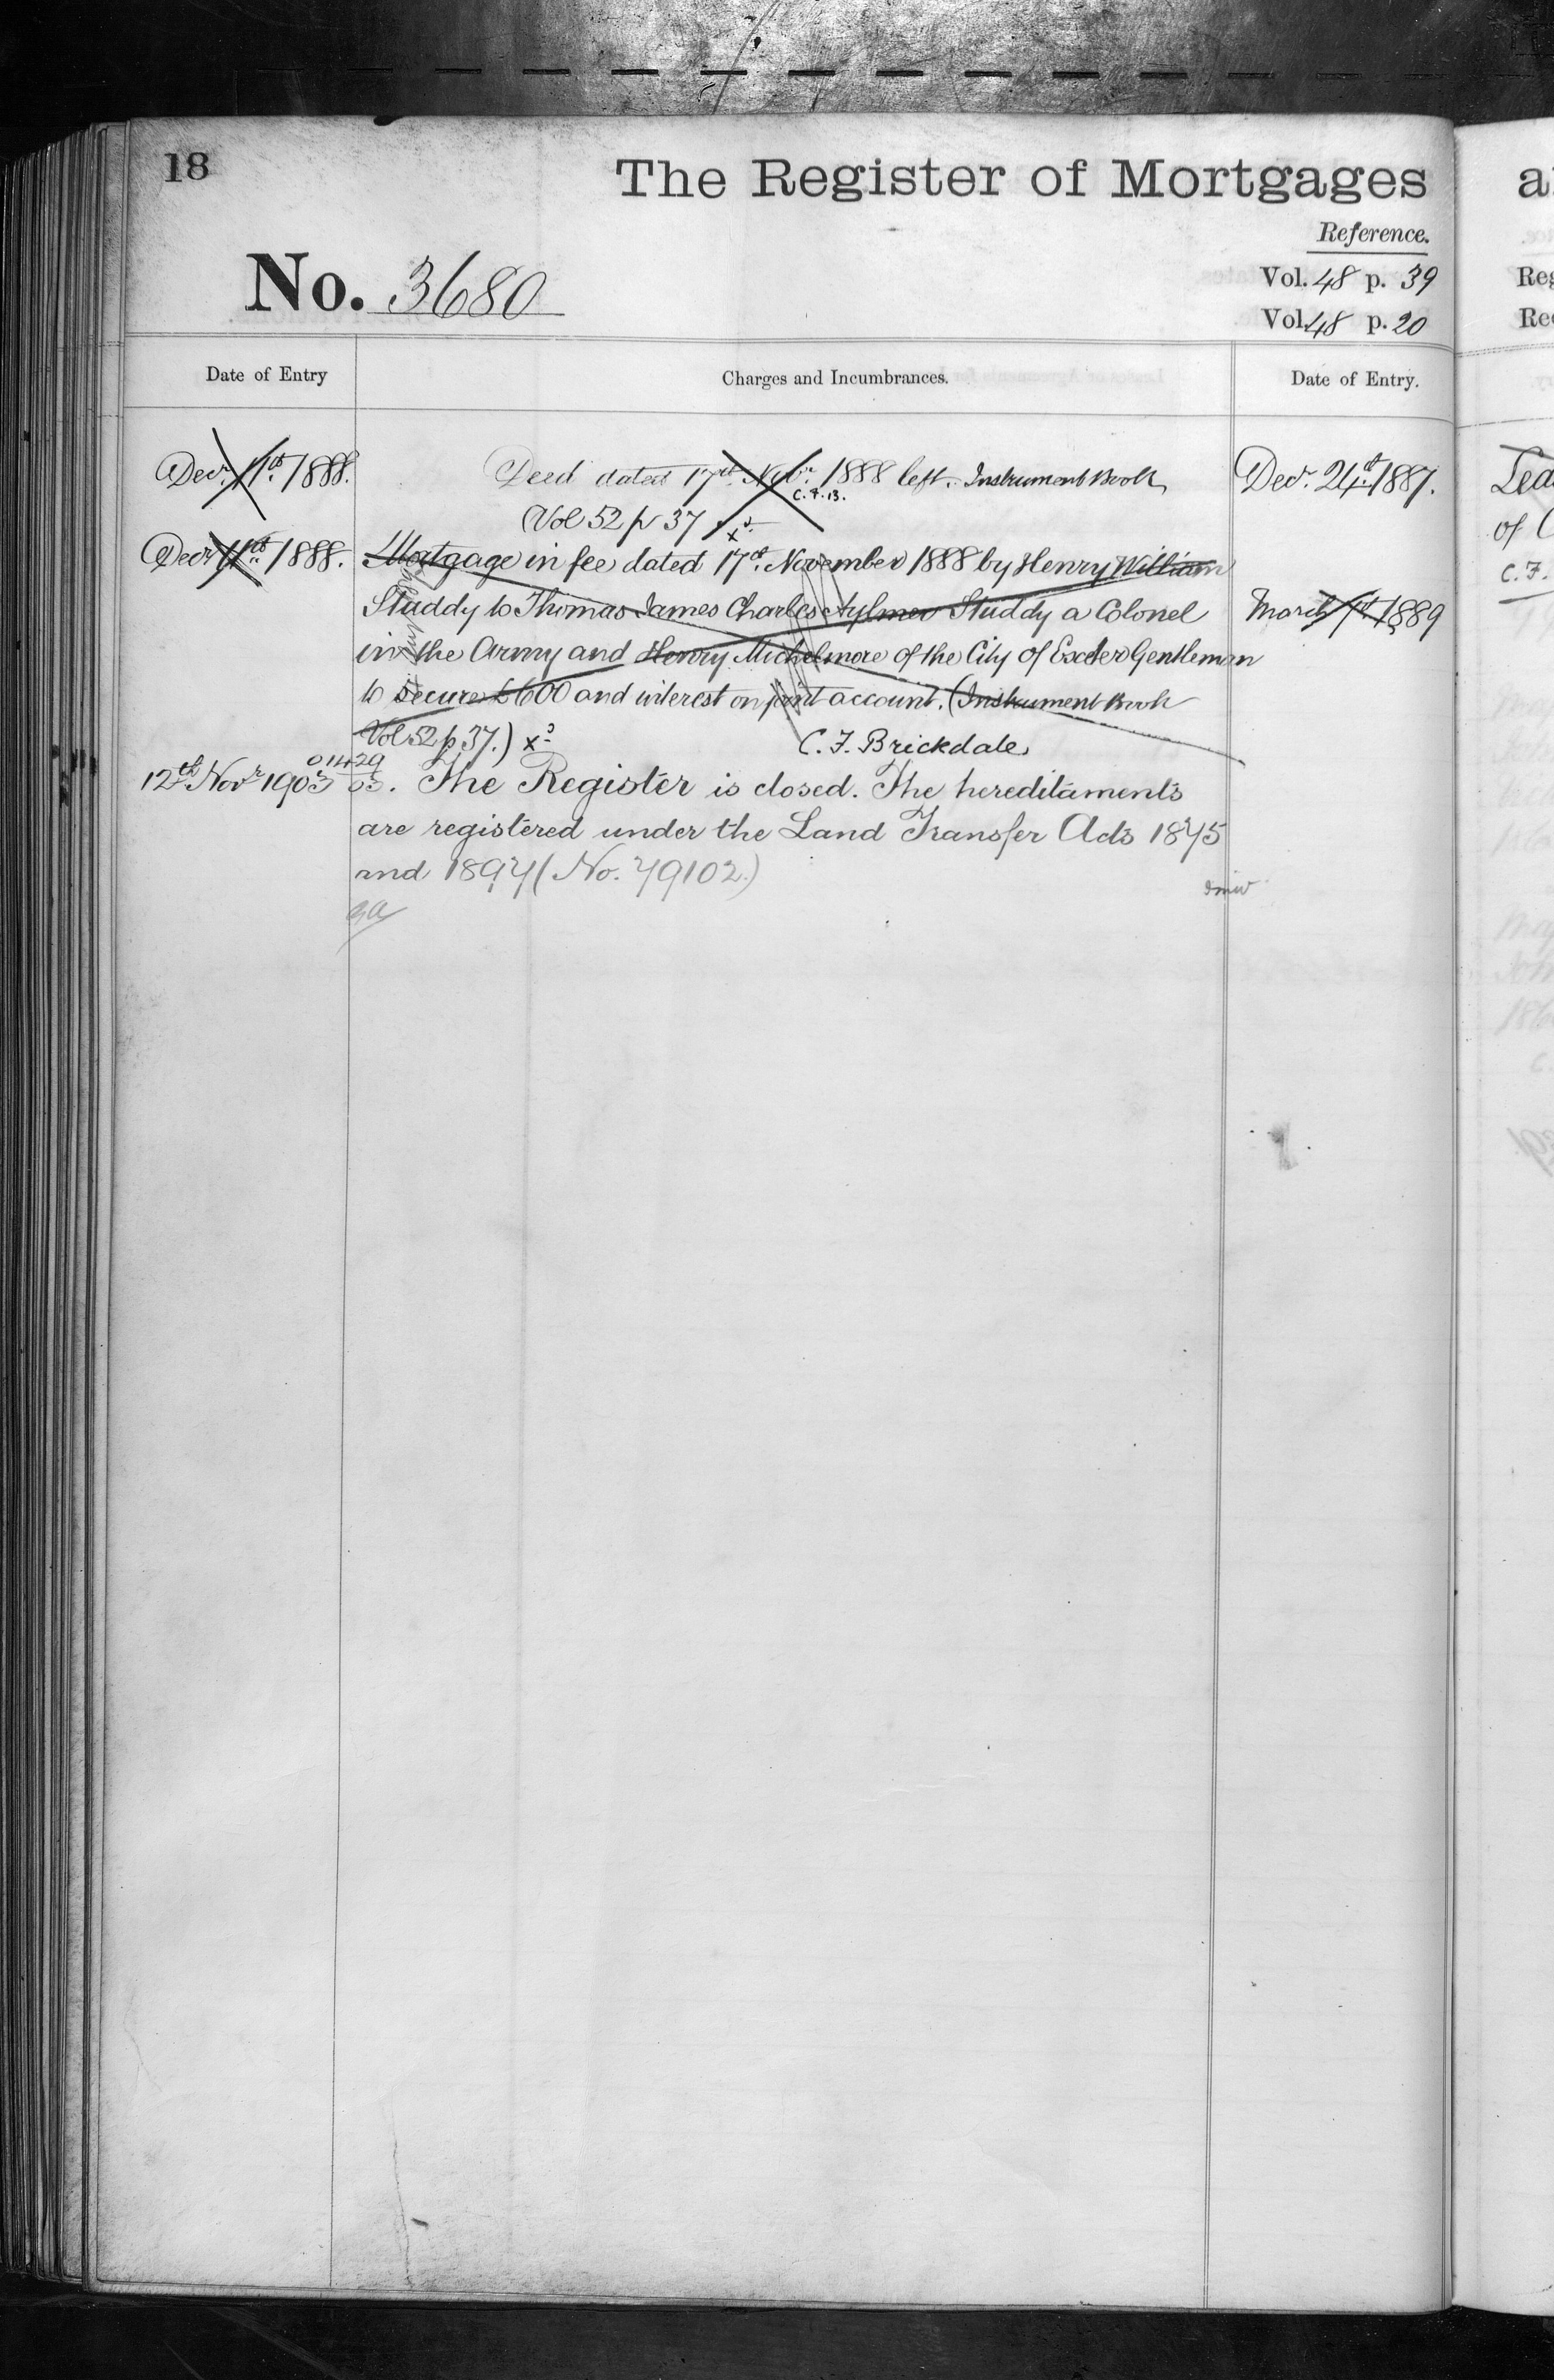 18
The Register of Mortgages
Reference.
No. 3680
Vol. 48 p. 39
Vol. 48 p. 20
Date of Entry
Charges and Incumbrances.
Date of Entry.
Decr. 11th. 1888.
Deed dated 17th Novr. 1888 left. Instrument Book
C.F.B.
(Vol 52 p 37
Decr 11th. 1888.
Mortgage in fee dated 17th. November 1888 by Henry William
Studdy to Thomas James Charles Aylmer Studdy a Colonel
in the Army and Henry Michelmore of the City of Exeter Gentleman
to secure £600 and interest on joint account. (Instrument Book
Vol 52 p. 37.)
C. F. Brickdale
12th Novr 1903
01429
03. The Register is closed. The hereditaments
are registered under the Land Transfer Acts 1875
and 1897 (No. 79102.)
Decr. 24th. 1887.
March 1889
a
Reg
Re
Lea
of
C.F.